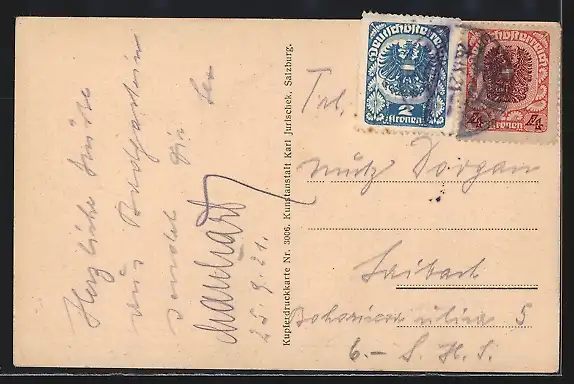 Herzliche Grüße
aus Badgastein
sendet Dir
25.9.21.
Kupferdruckkarte Nr. 3006. Kunstanstalt Karl Jurischek, Salzburg.
Deutschösterreich
2
Kronen
Deutschösterreich
4
Kronen
Frl.
Mutz Dorgan
Laibach
ulica 5
6.- S. H. S.